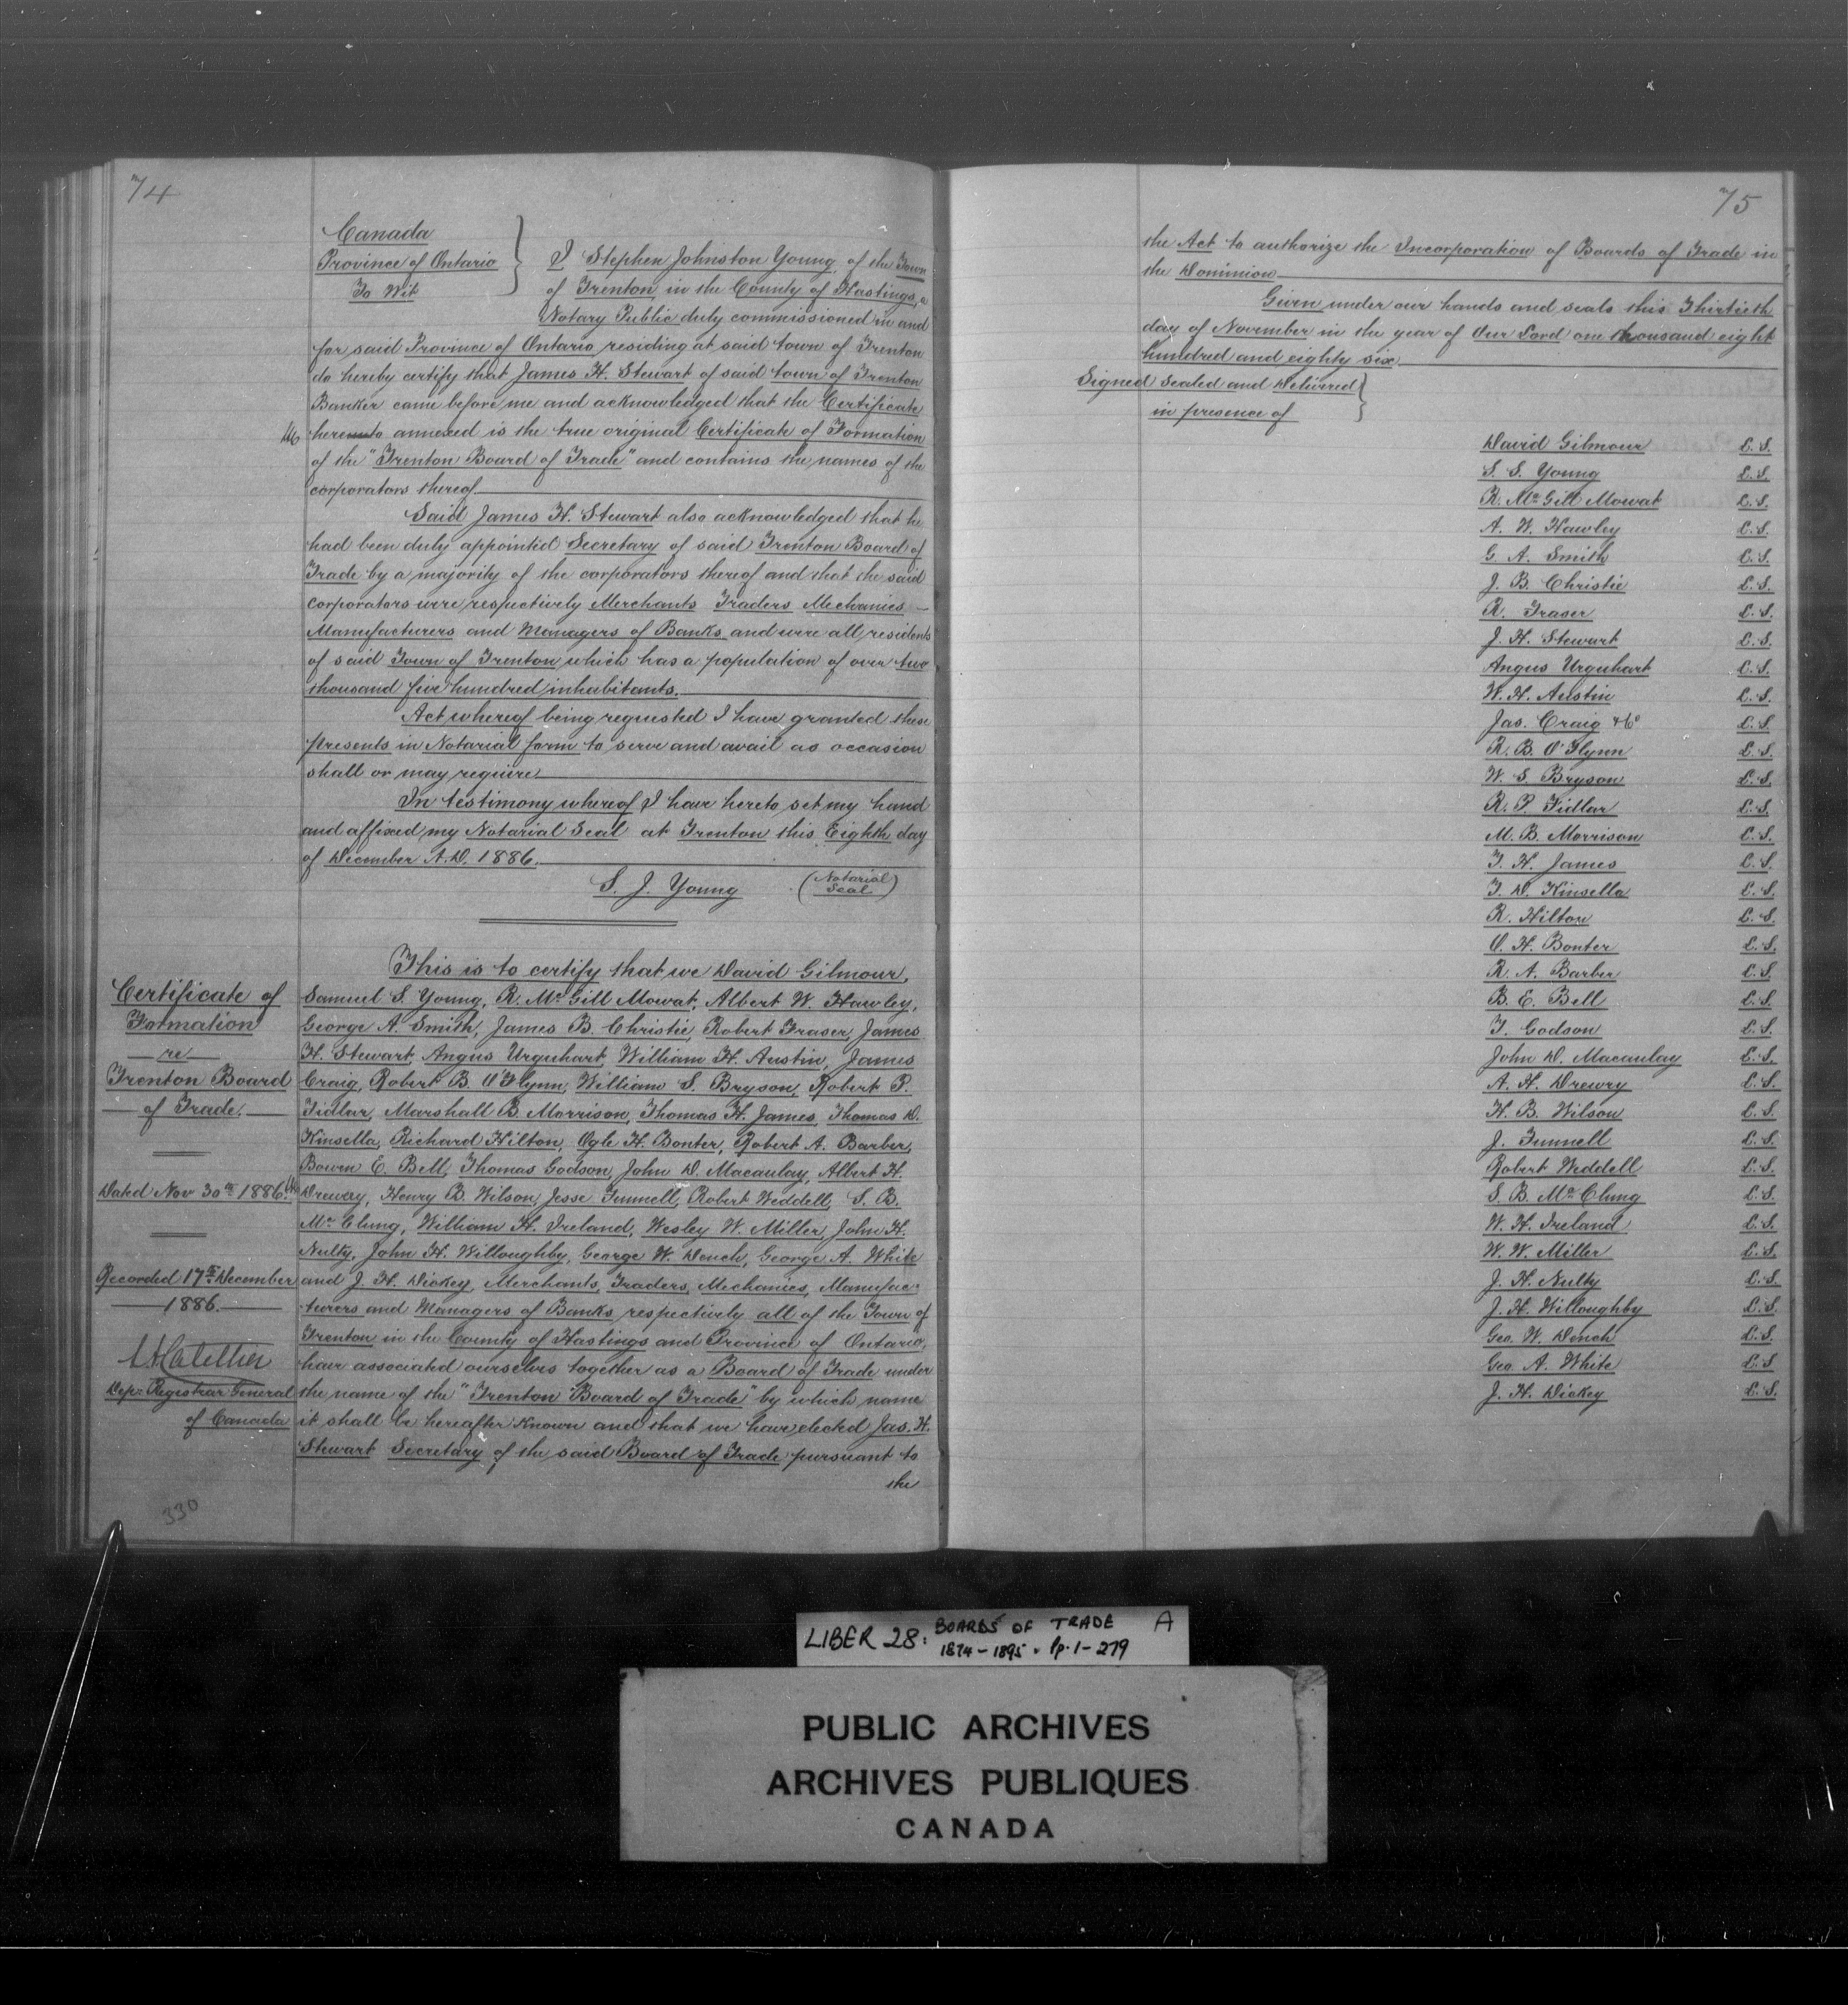 74
Canada
Province of Ontario
To Wit
I Stephen Johnston Young, of the Town
of Trenton, in the County of Hastings, a
Notary Public duly commissioned in and
for said Province of Ontario residing at said town of Trenton
do hereby certify that James H. Stewart of said town of Trenton
Banker came before me and acknowledged that the Certificate
hereunto annexed is the true original Certificate of Formation
of the "Trenton Board of Trade" and contains the names of the
corporators thereof
Said James H. Stewart also acknowledged that he
had been duly appointed Secretary of said Trenton Board of
Trade by a majority of the corporators thereof and that the said
corporators were respectively Merchants Traders Mechanics —
Manufacturers and Managers of Banks and were all residents
of said Town of Trenton which has a population of over two
thousand five hundred inhabitants.
Act whereof being requested I have granted these
presents in Notarial form to serve and avail as occasion
shall or may require
In testimony whereof I have hereto set my hand
and affixed my Notarial Seal at Trenton this Eighth day
of December A.D. 1886.
S. J. Young (Notarial Seal)
Certificate of
Formation
re
Trenton Board
of Trade.
Dated Nov 30th 1886.
Recorded 17th December
1886.
Depy Registrar General
of Canada
This is to certify that we David Gilmour,
Samuel S. Young, R. McGill Mowat, Albert W. Hawley,
George A. Smith, James B. Christie, Robert Fraser, James
H. Stewart, Angus Urquhart, William H. Austin, James
Craig, Robert B. O'Flynn, William S. Bryson, Robert P.
Fidlar, Marshall B. Morrison, Thomas H. James, Thomas D.
Kinsella, Richard Hilton, Ogle H. Bonter, Robert A. Barber,
Bowen E. Bell, Thomas Godson, John D. Macaulay, Albert H.
Drewery, Henry B. Wilson, Jesse Funnell, Robert Weddell, S. B.
McClung, William H. Ireland, Wesley W. Miller, John H.
Nulty, John H. Willoughby, George W. Dench, George A. White
and J. H. Dickey, Merchants, Traders, Mechanics, Manufac-
turers and Managers of Banks respectively all of the Town of
Trenton in the County of Hastings and Province of Ontario,
have associated ourselves together as a Board of Trade under
the name of the "Trenton Board of Trade" by which name
it shall be hereafter known and that we have elected Jas. H.
Stewart Secretary of the said Board of Trade pursuant to
the
330
75
the Act to authorize the Incorporation of Boards of Trade in
the Dominion
Given under our hands and seals this Thirtieth
day of November in the year of Our Lord one thousand eight
hundred and eighty six
Signed sealed and Delivered
in presence of
David Gilmour L.S.
S. S. Young L.S.
R. McGill Mowat L.S.
A. W. Hawley L.S.
G. A. Smith L.S.
J. B. Christie L.S.
R. Fraser L.S.
J. H. Stewart L.S.
Angus Urquhart L.S.
W. H. Austin L.S.
Jas. Craig & Co L.S.
R. B. O'Flynn L.S.
W. S. Bryson L.S.
R. P. Fidlar L.S.
M. B. Morrison L.S.
T. H. James L.S.
T. D. Kinsella L.S.
R. Hilton L.S.
O. H. Bonter L.S.
R. A. Barber L.S.
B. E. Bell L.S.
T. Godson L.S.
John D. Macaulay L.S.
A. H. Drewry L.S.
H. B. Wilson L.S.
J. Funnell L.S.
Robert Weddell L.S.
S. B. McClung L.S.
W. H. Ireland L.S.
W. W. Miller L.S.
J. H. Nulty L.S.
J. H. Willoughby L.S.
Geo. W. Dench L.S.
Geo. A. White L.S.
J. H. Dickey L.S.
LIBER 28: BOARDS OF TRADE A
1874-1895 · Pp. 1-279
PUBLIC ARCHIVES
ARCHIVES PUBLIQUES
CANADA